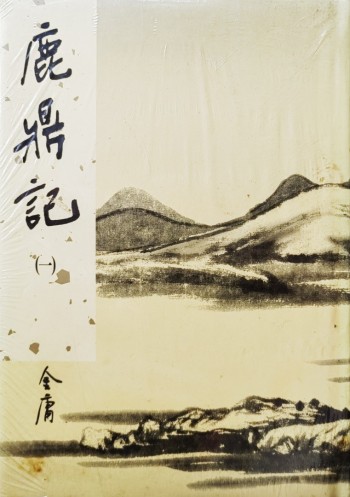 鹿鼎記
(一)
金庸